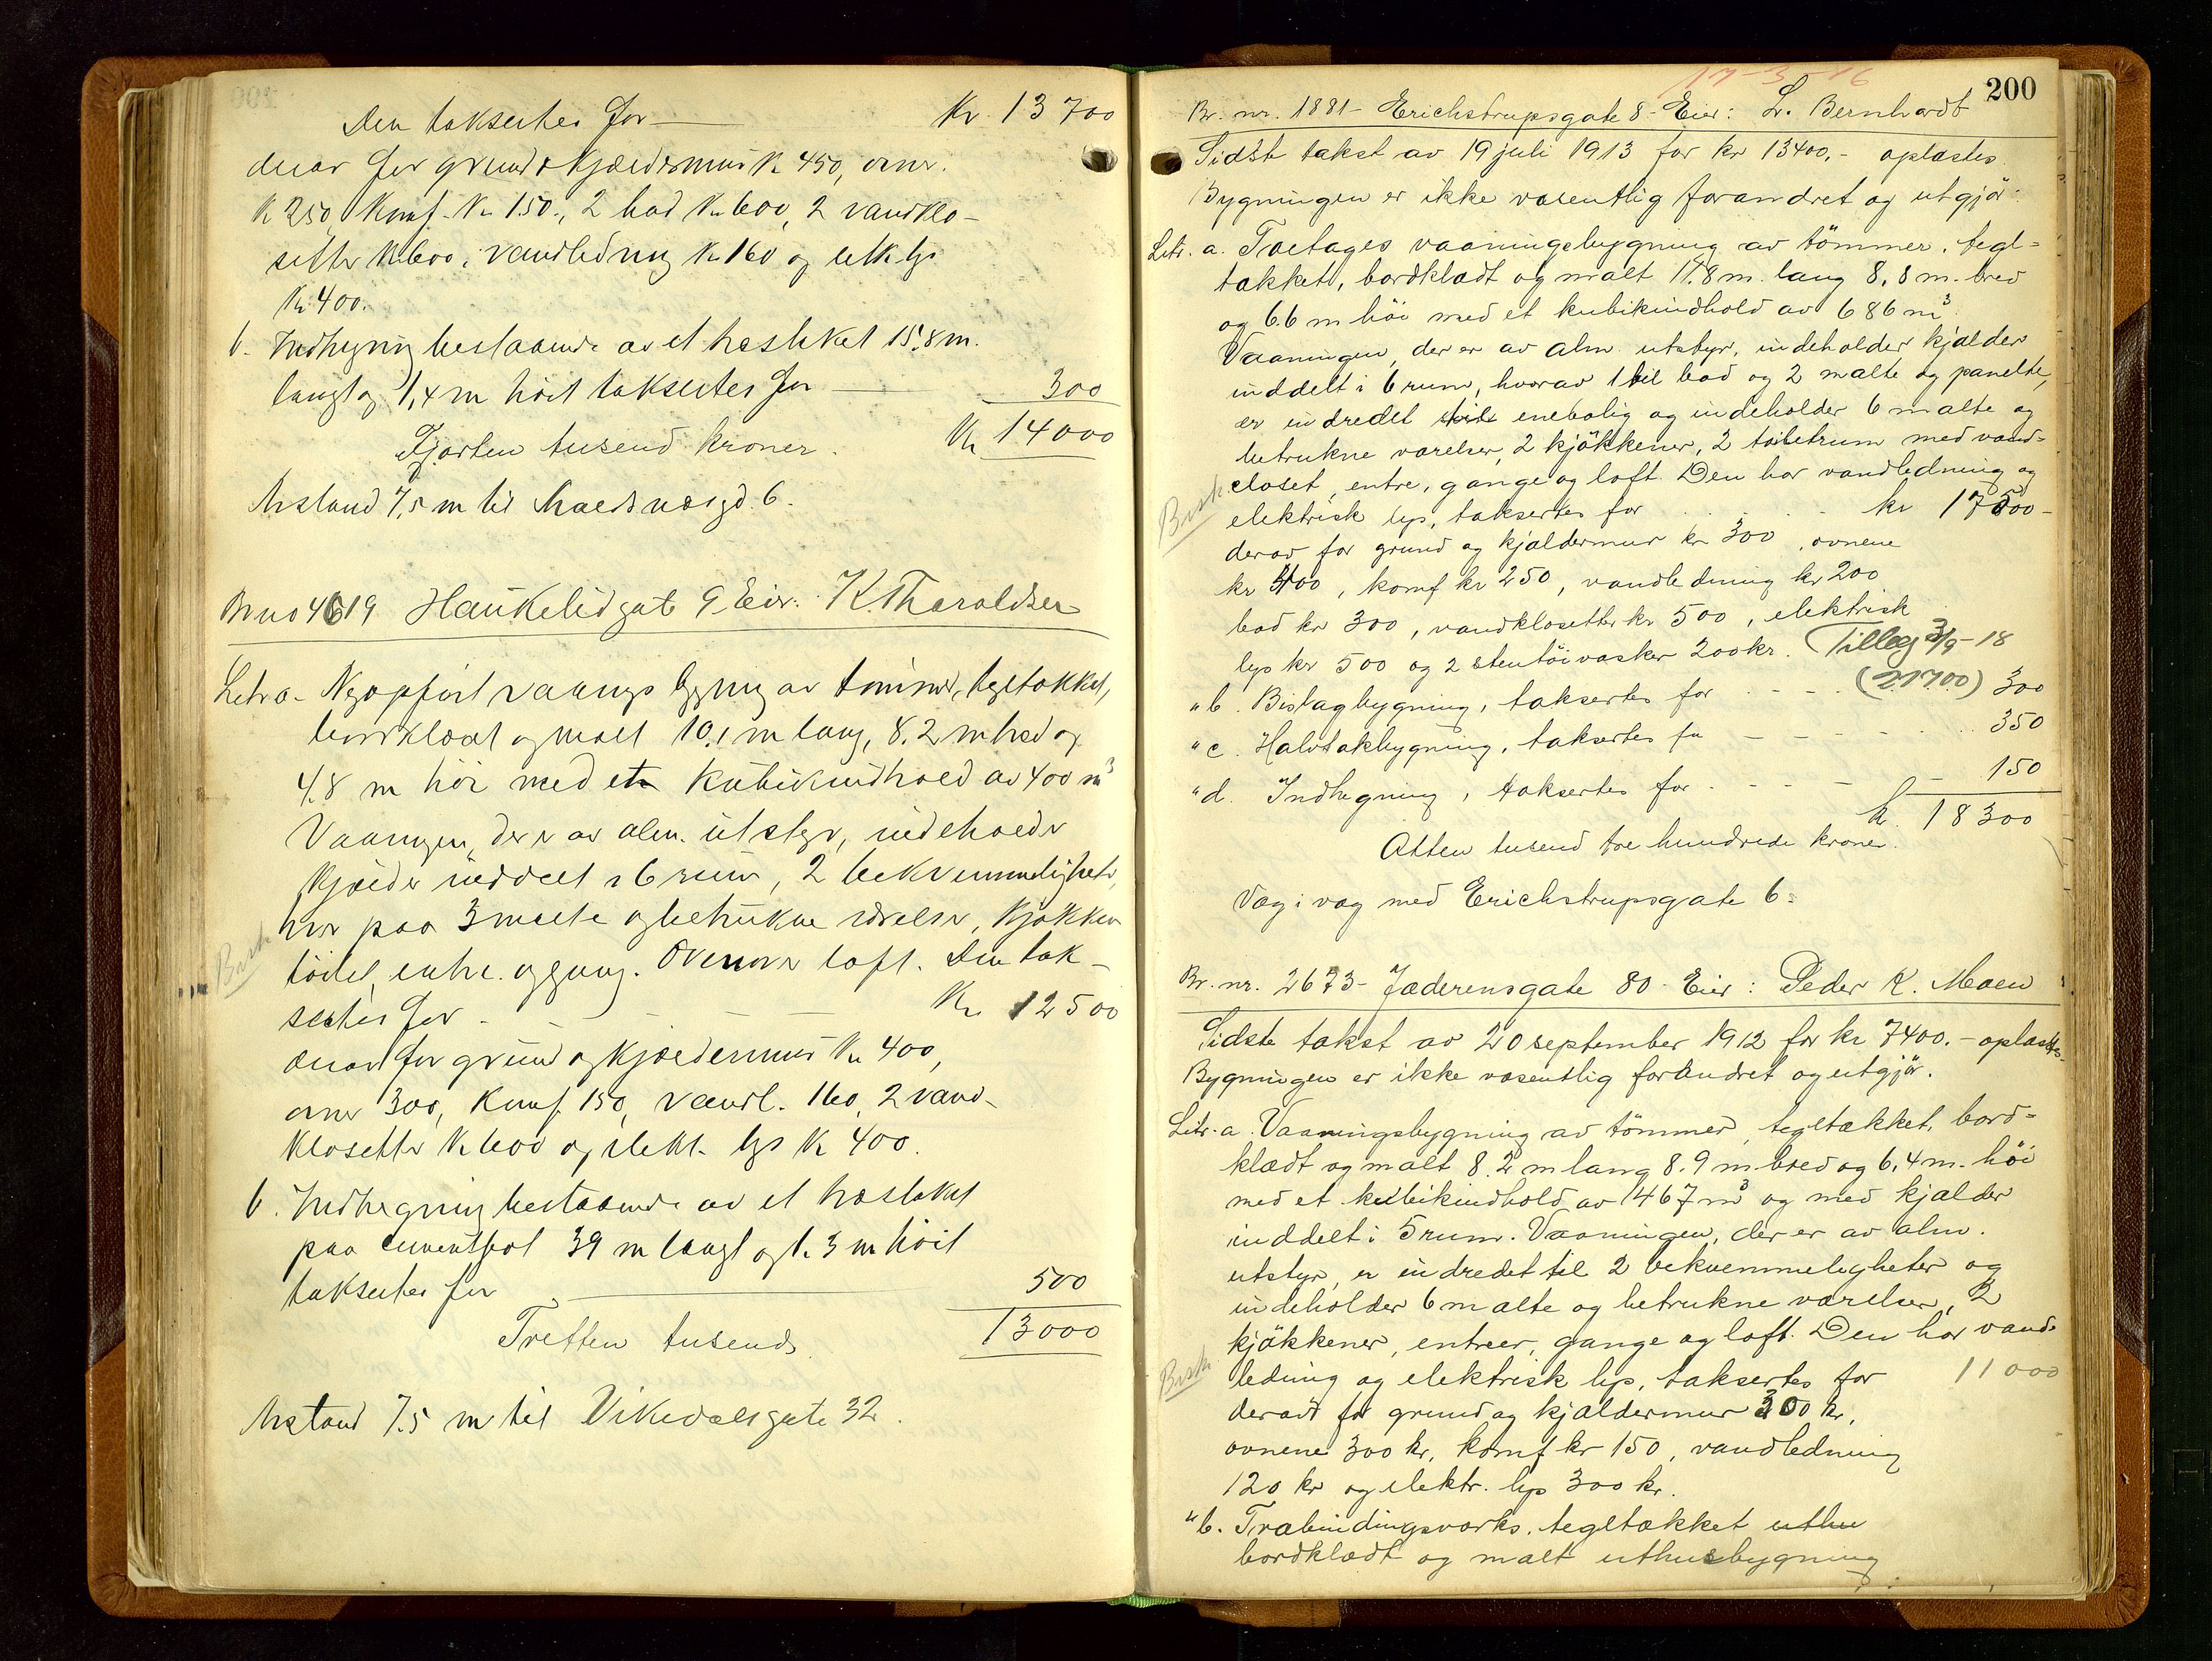 Den takseres for — Kr. 13 700
derav for grund & kjældermur Kr 450, ovner
Kr 250, Komf. Kr 150., 2 bad Kr 600, 2 vandklo-
setter Kr 600, vandledning Kr 160 og elk. lys
Kr 400.
b. Indhegning bestaaende av et hestaket 15.8 m.
langt og 1,4 m høit takseres for — 300
Fjorten tusend kroner. Kr 14000
Avstand 7,5 m til 6.
Br no 4619 Haukelidgate 9 Eier: K. Tharaldsen
Litr a. Nyopført vaaningsbygning av tømmer, tegltækket,
bordklædt og malt 10.1 m lang, 8.2 m bred og
4.8 m høi med et Kubikindhold av 400 m³
Vaaningen, der er av alm. utstyr, indeholder
kjælder inddelt i 6 rum, 2 bekvemmeligheter,
hver paa 3 malte og betrukne værelser, kjøkken
toilet, entre og gang. Ovenover loft. Den tak-
seres for - — — Kr. 12500
derav for grund og kjældermur Kr 400,
ovner 300, Komf. 150, vandl. 160, 2 vand-
klosetter Kr 600 og elekt. lys Kr 400.
b. Indhegning bestaaende av et hestakit
paa cementfot 39 m langt og 1.3 m høit
takseres for — 500
Tretten tusend. 13000
Avstand 7.5 m til Vikedalsgate 32.
17-3-16
200
Br. nr. 1881 - Erichstrupsgate 8 - Eier: L. Bernhardt
Sidst takst av 19 juli 1913 for kr 13400,- oplæstes.
Bygningen er ikke væsentlig forandret og utgjør:
Litr. a. Toetages vaaningsbygning av tömmer, tegl=
tækket, bordklædt og malt 11.8 m. lang 8,8 m. bred
og 6.6 m höi med et kubikindhold av 686 m³.
Vaaningen, der er av alm. utstyr, indeholder kjælder
inddelt i 6 rum, hvorav 1 til bad og 2 malte og panelte,
er indredet til enebolig og indeholder 6 malte og
betrukne værelser, 2 kjökkener, 2 toiletrum med vand=
closet, entre, gange og loft. Den har vandledning og
Besk. elektrisk lys, takseres for . . . kr 17500-
derav for grund og kjældermur kr 300, ovnene
kr 400, komf kr 250, vandledning kr 200
bad kr 300, vandklosetter kr 500, elektrisk
lys kr 500 og 2 stentöivasker 200 kr. Tillæg 3/9-18
" b. Bislagbygning, takseres for . - - . (21700) 300
" c. Halvtakbygning, takseres for — - - - . 350
" d. Indhegning, takseres for . - - — - 150
kr. 18300
Atten tusend tre hundrede kroner.
Væg i væg med Erichstrupsgate 6.
Br. nr. 2673 - Jæderensgate 80 - Eier: Peder K. Moen
Sidste takst av 20 september 1912 for kr 7400.- oplæstes.
Bygningen er ikke væsentlig forandret og utgjör.
Litr. a. Vaaningsbygning av tömmer, tegltækket, bord=
klædt og malt 8.2 m lang 8.9 m bred og 6,4 m. höi
med et kubikindhold av 467 m³ og med kjælder
inddelt i 5 rum. Vaaningen, der er av alm.
utstyr, er indredet til 2 bekvemmeligheter og
indeholder 6 malte og betrukne værelser, 2
kjökkener, entreer, gange og loft. Den har vand-
Besk. ledning og elektrisk lys, takseres for 11000
derav for grund og kjældermur 300 kr,
ovnene 300 kr, komf kr 150, vandledning
120 kr og elektr. lys 300 kr.
" b. Træbindingsværks, tegltækket uthu
bordklædt og malt uthusbygning